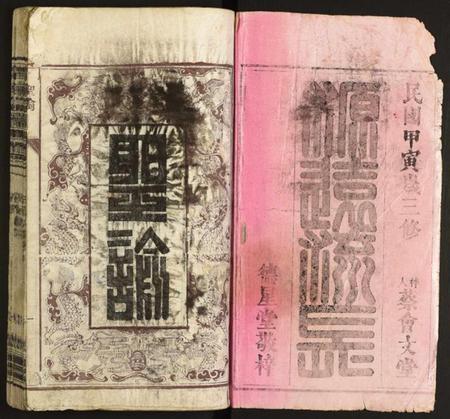 民國甲寅歲三修
會文堂
源遠流長
德星堂敬梓
聖諭